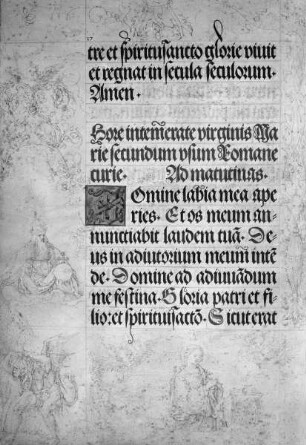 tre et spiritusancto glorie viuit
et regnat in secula seculorum.
Amen.
Hore intemerate virginis Ma
rie secundum vsum Romane
curie. Ad matutinas.
Domine labia mea ape
ries. Et os meum an-
nunctiabit laudem tuã. De-
us in adiutorium meum intẽ
de. Domine ad adiuuãdum
me festina. Gloria patri et fi-
lio: et spirituisactõ. Sicut erat